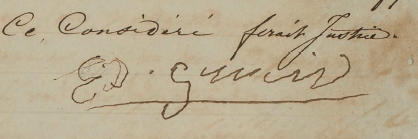 Ce Considéré ferait Justice.
Ed.